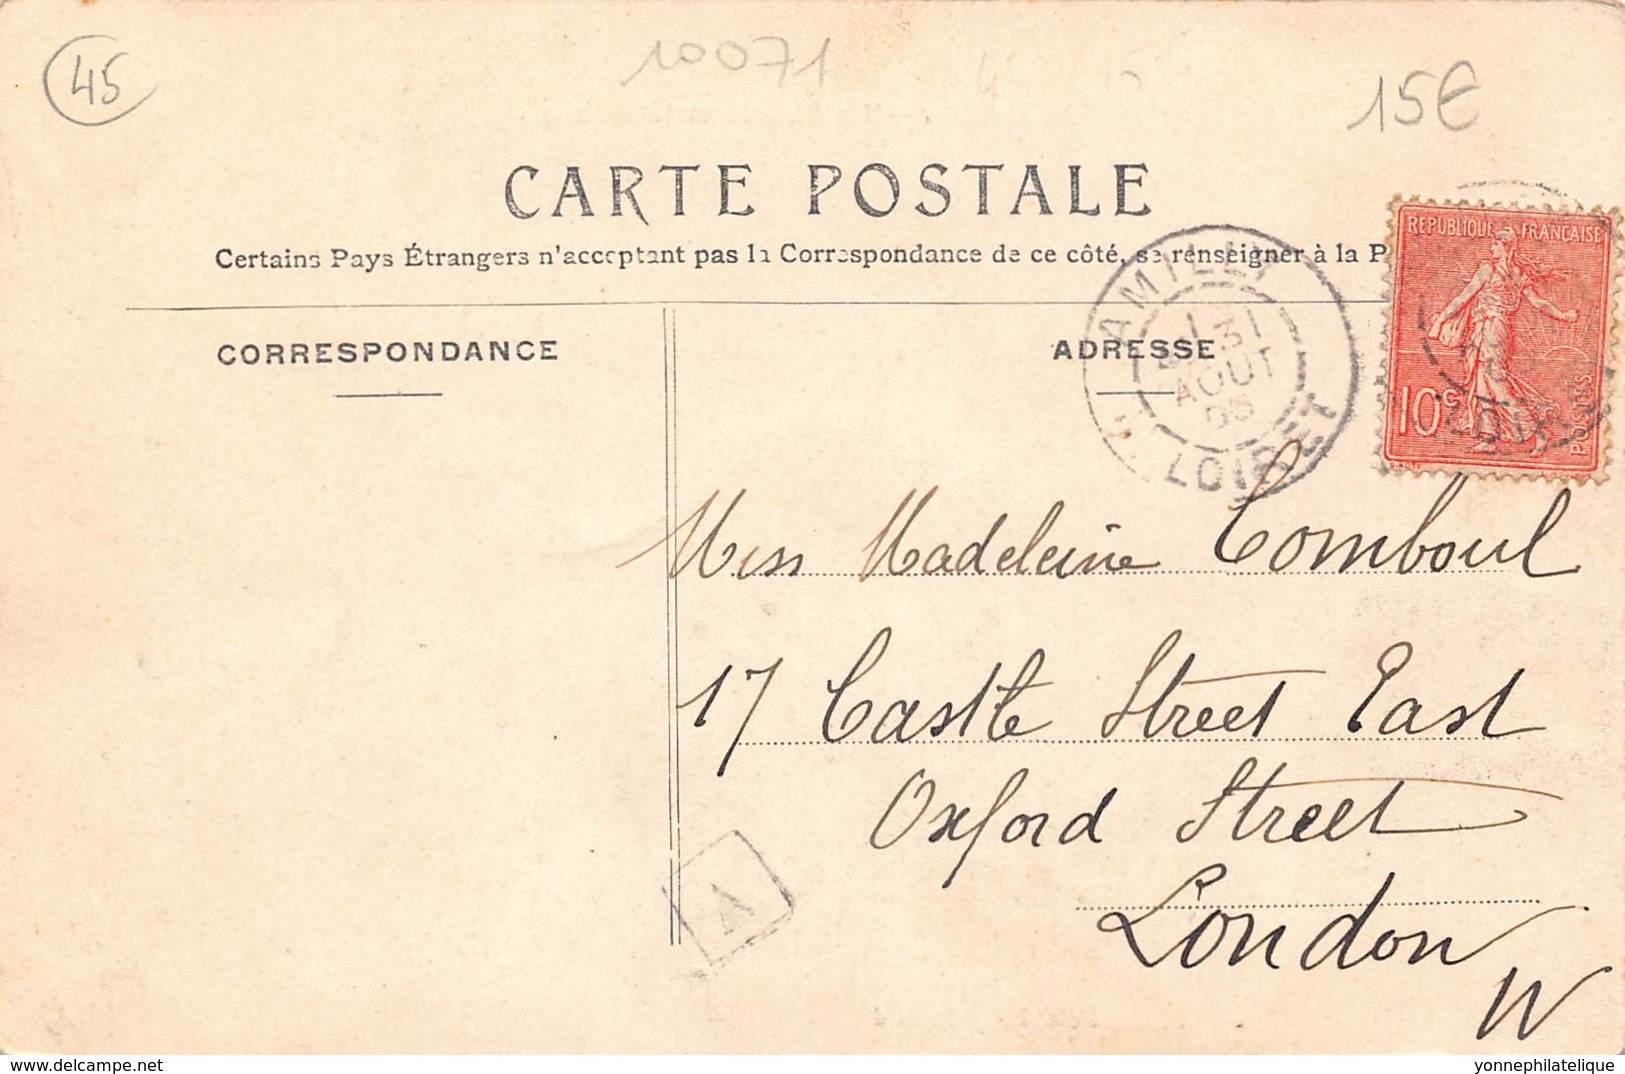 45
10071
15€
CARTE POSTALE
Certains Pays Étrangers n'acceptant pas la Correspondance de ce côté, se renseigner à la P
CORRESPONDANCE
ADRESSE
AMILLY
31
AOUT
05
LOIRET
REPUBLIQUE FRANÇAISE
10c
POSTES
Miss Madeleine Comboul
17 Castle Street East
Oxford Street
London
W
A
www.delcampe.net
yonnephilatelique